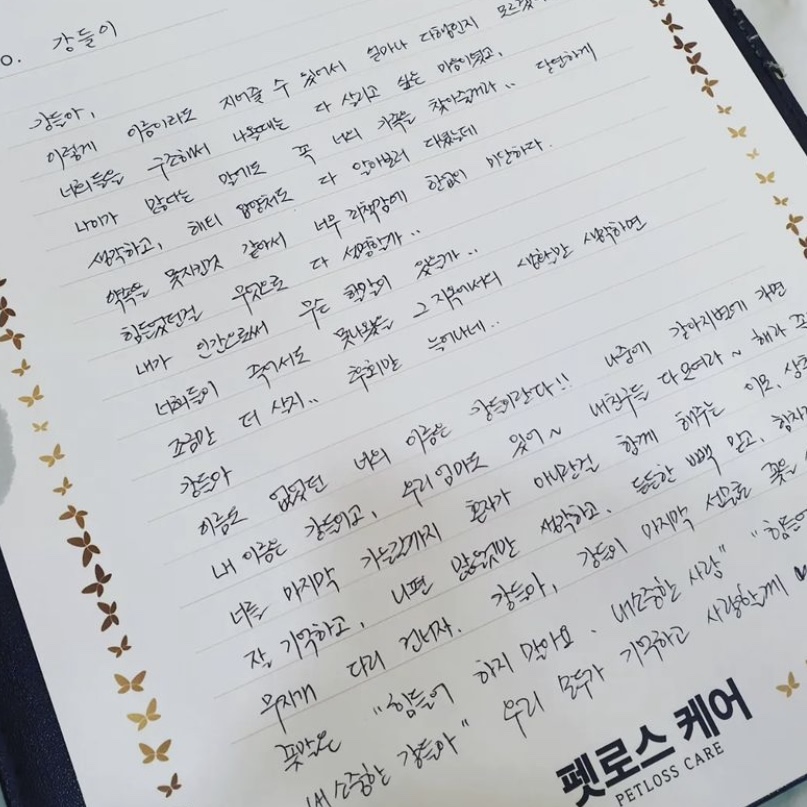 o. 강들이
강들아,
이렇게 이름이라도 지어줄 수 있어서 얼마나 다행인지
너희들을 구조해서 나올때는 다 살리고 싶은 마음이였고,
나이가 많다는 말에도 꼭 너의 가족을 찾아줄게라.. 당연하게
생각하고, 해티 입양처도 다 알아보러 다녔는데
약속을 못지킨것 같아서 너무 죄책감에 한없이 미안하다.
힘들었던걸 무엇으로 다 설명할까..
내가 인간으로써 무슨 할말이 있는가..
너희들이 죽어서도 못나왔을 그 지옥에서의 생활만 생각하면
조금만 더 살지.. 후회만 늘어나네..
강들아
이름도 없었던 너의 이름은 강들이란다!! 나중에 강아지별에 가면
내 이름은 강들이고, 우리 엄마도 있어~ 내친구들 다 모여라~ 해라
너를 마지막 가는길까지 혼자가 아니란걸 함께 해주는 이모,
잘 기억하고, 니편 많을꺼만 생각하고. 든든한 빽 믿고,
무지개 다리 건너자. 강들아, 강들이 마지막 선물로 꽃을
꽃말은 "힘들어 하지 말아요. 내소중한 사랑"
내 소중한 강들아" 우리 모두가 기억하고 사랑할게
펫로스 케어
PETLOSS CARE